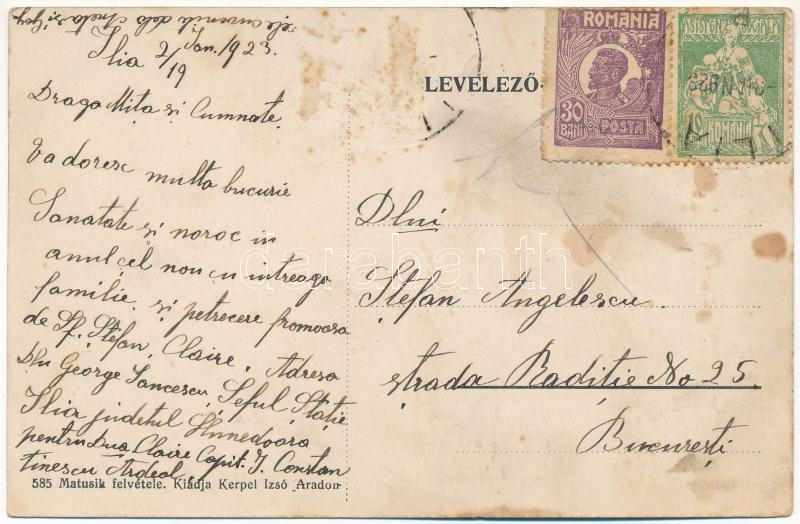 Ilia 2/19 Jan. 1923.
Draga Mița și Cumnate
Va doresc multa bucurie
Sanatate și noroc in
anul cel nou cu intreaga
familie și petrecere fromoasa
de Sf. Ștefan, Claire, Adresa
Dlu George Iancescu, Șeful Stație
Ilia județul Hunnedoara
pentru Dna Claire Capit. I. Constan
tinescu Ardeal
585 Matusik felvétele. Kiadja Kerpel Izsó Aradon
LEVELEZŐ-
ROMANIA
30
BANI
POSTA
ASISTENȚA SOCIALA
10
ROMÂNIA
ILIA
Dlui
Ștefan Angelescu
strada Raditie No 25
București
darabanth